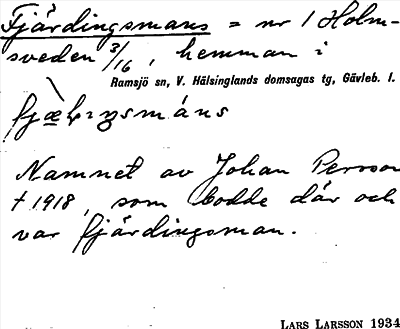 Fjärdingsmans = nr 1 Holm-
sveden 3/16, hemman i
Ramsjö sn, V. Hälsinglands domsagas tg, Gävleb. l.
Namnet av Johan Persson
† 1918, som bodde där och
var fjärdingsman.
LARS LARSSON 1934